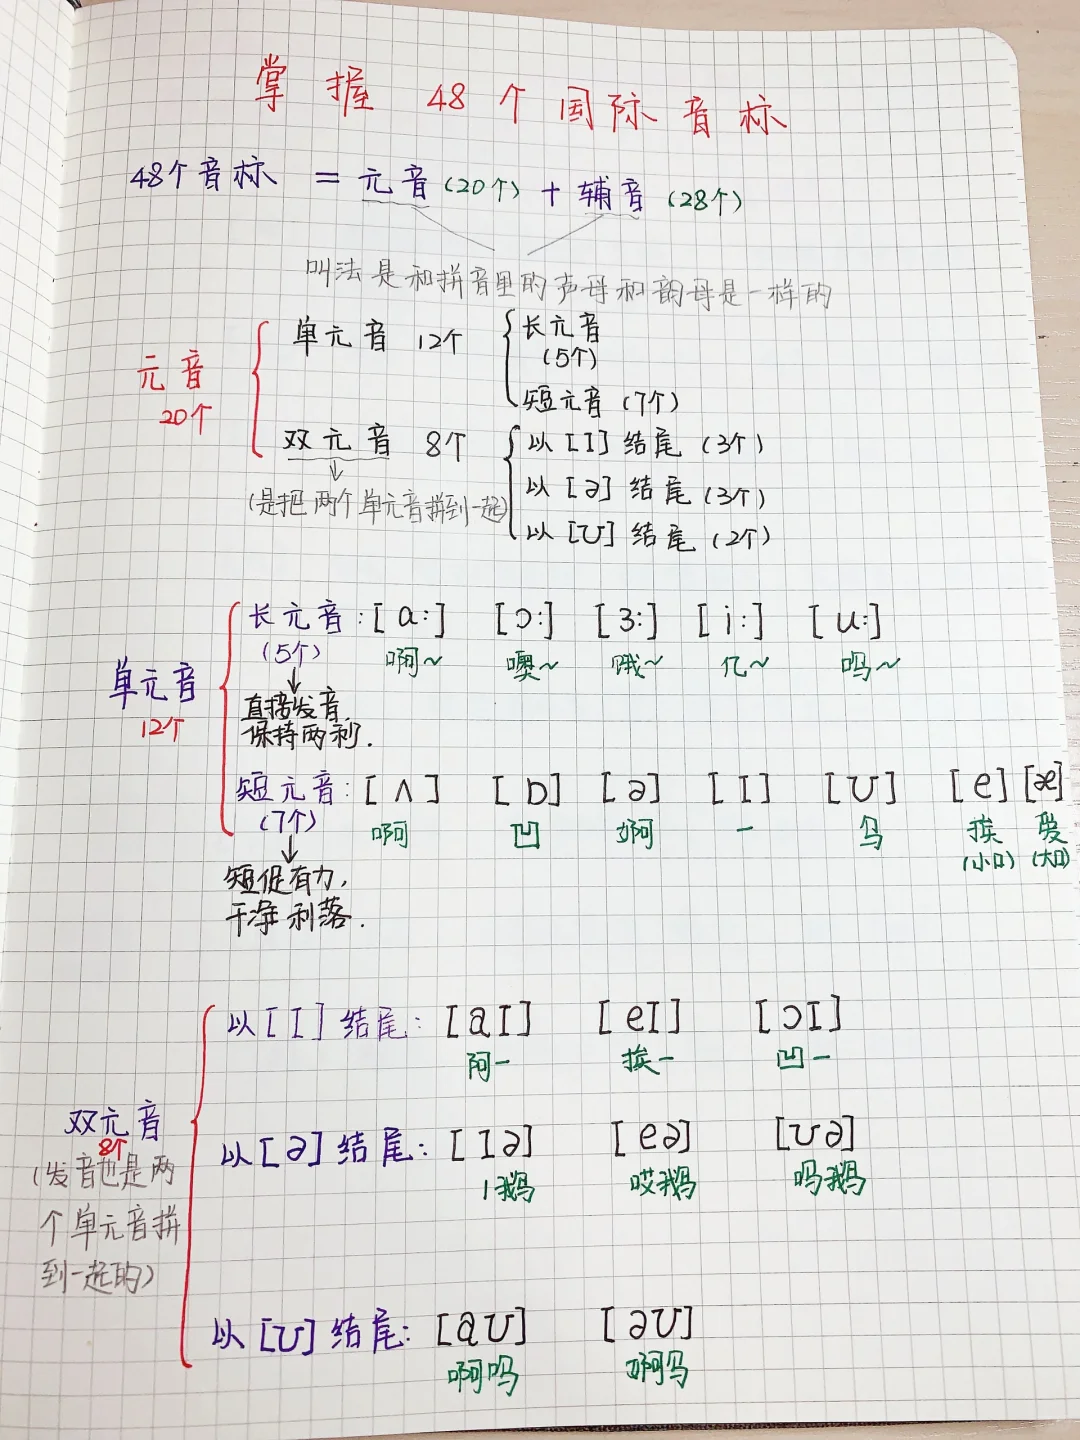 掌握 48个国际音标
48个音标 = 元音(20个) + 辅音(28个)
叫法是和拼音里的声母和韵母是一样的
元音
20个
单元音 12个
长元音
(5个)
短元音(7个)
双元音 8个
(是把两个单元音拼到一起)
以[I]结尾(3个)
以[ə]结尾(3个)
以[ʊ]结尾(2个)
单元音
12个
长元音:[a:] [ɔ:] [ɜ:] [i:] [u:]
(5个) 啊~ 噢~ 哦~ 亿~ 呜~
直接发音,
保持两秒.
短元音:[ʌ] [ɒ] [ə] [I] [ʊ] [e] [æ]
(7个) 啊 凹 婀 一 乌 挨 爱
(小口) (大口)
短促有力,
干净利落.
双元音
8个
(发音也是两
个单元音拼
到一起的)
以[I]结尾: [aI] [eI] [ɔI]
阿一 挨一 凹一
以[ə]结尾: [Iə] [eə] [ʊə]
1鹅 哎鹅 呜鹅
以[ʊ]结尾: [aʊ] [əʊ]
啊呜 婀乌